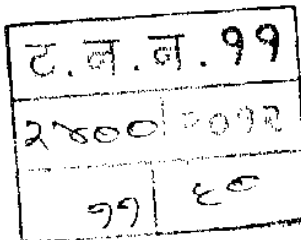 ट.न.न.११
२४०० २०१२
११ ६०